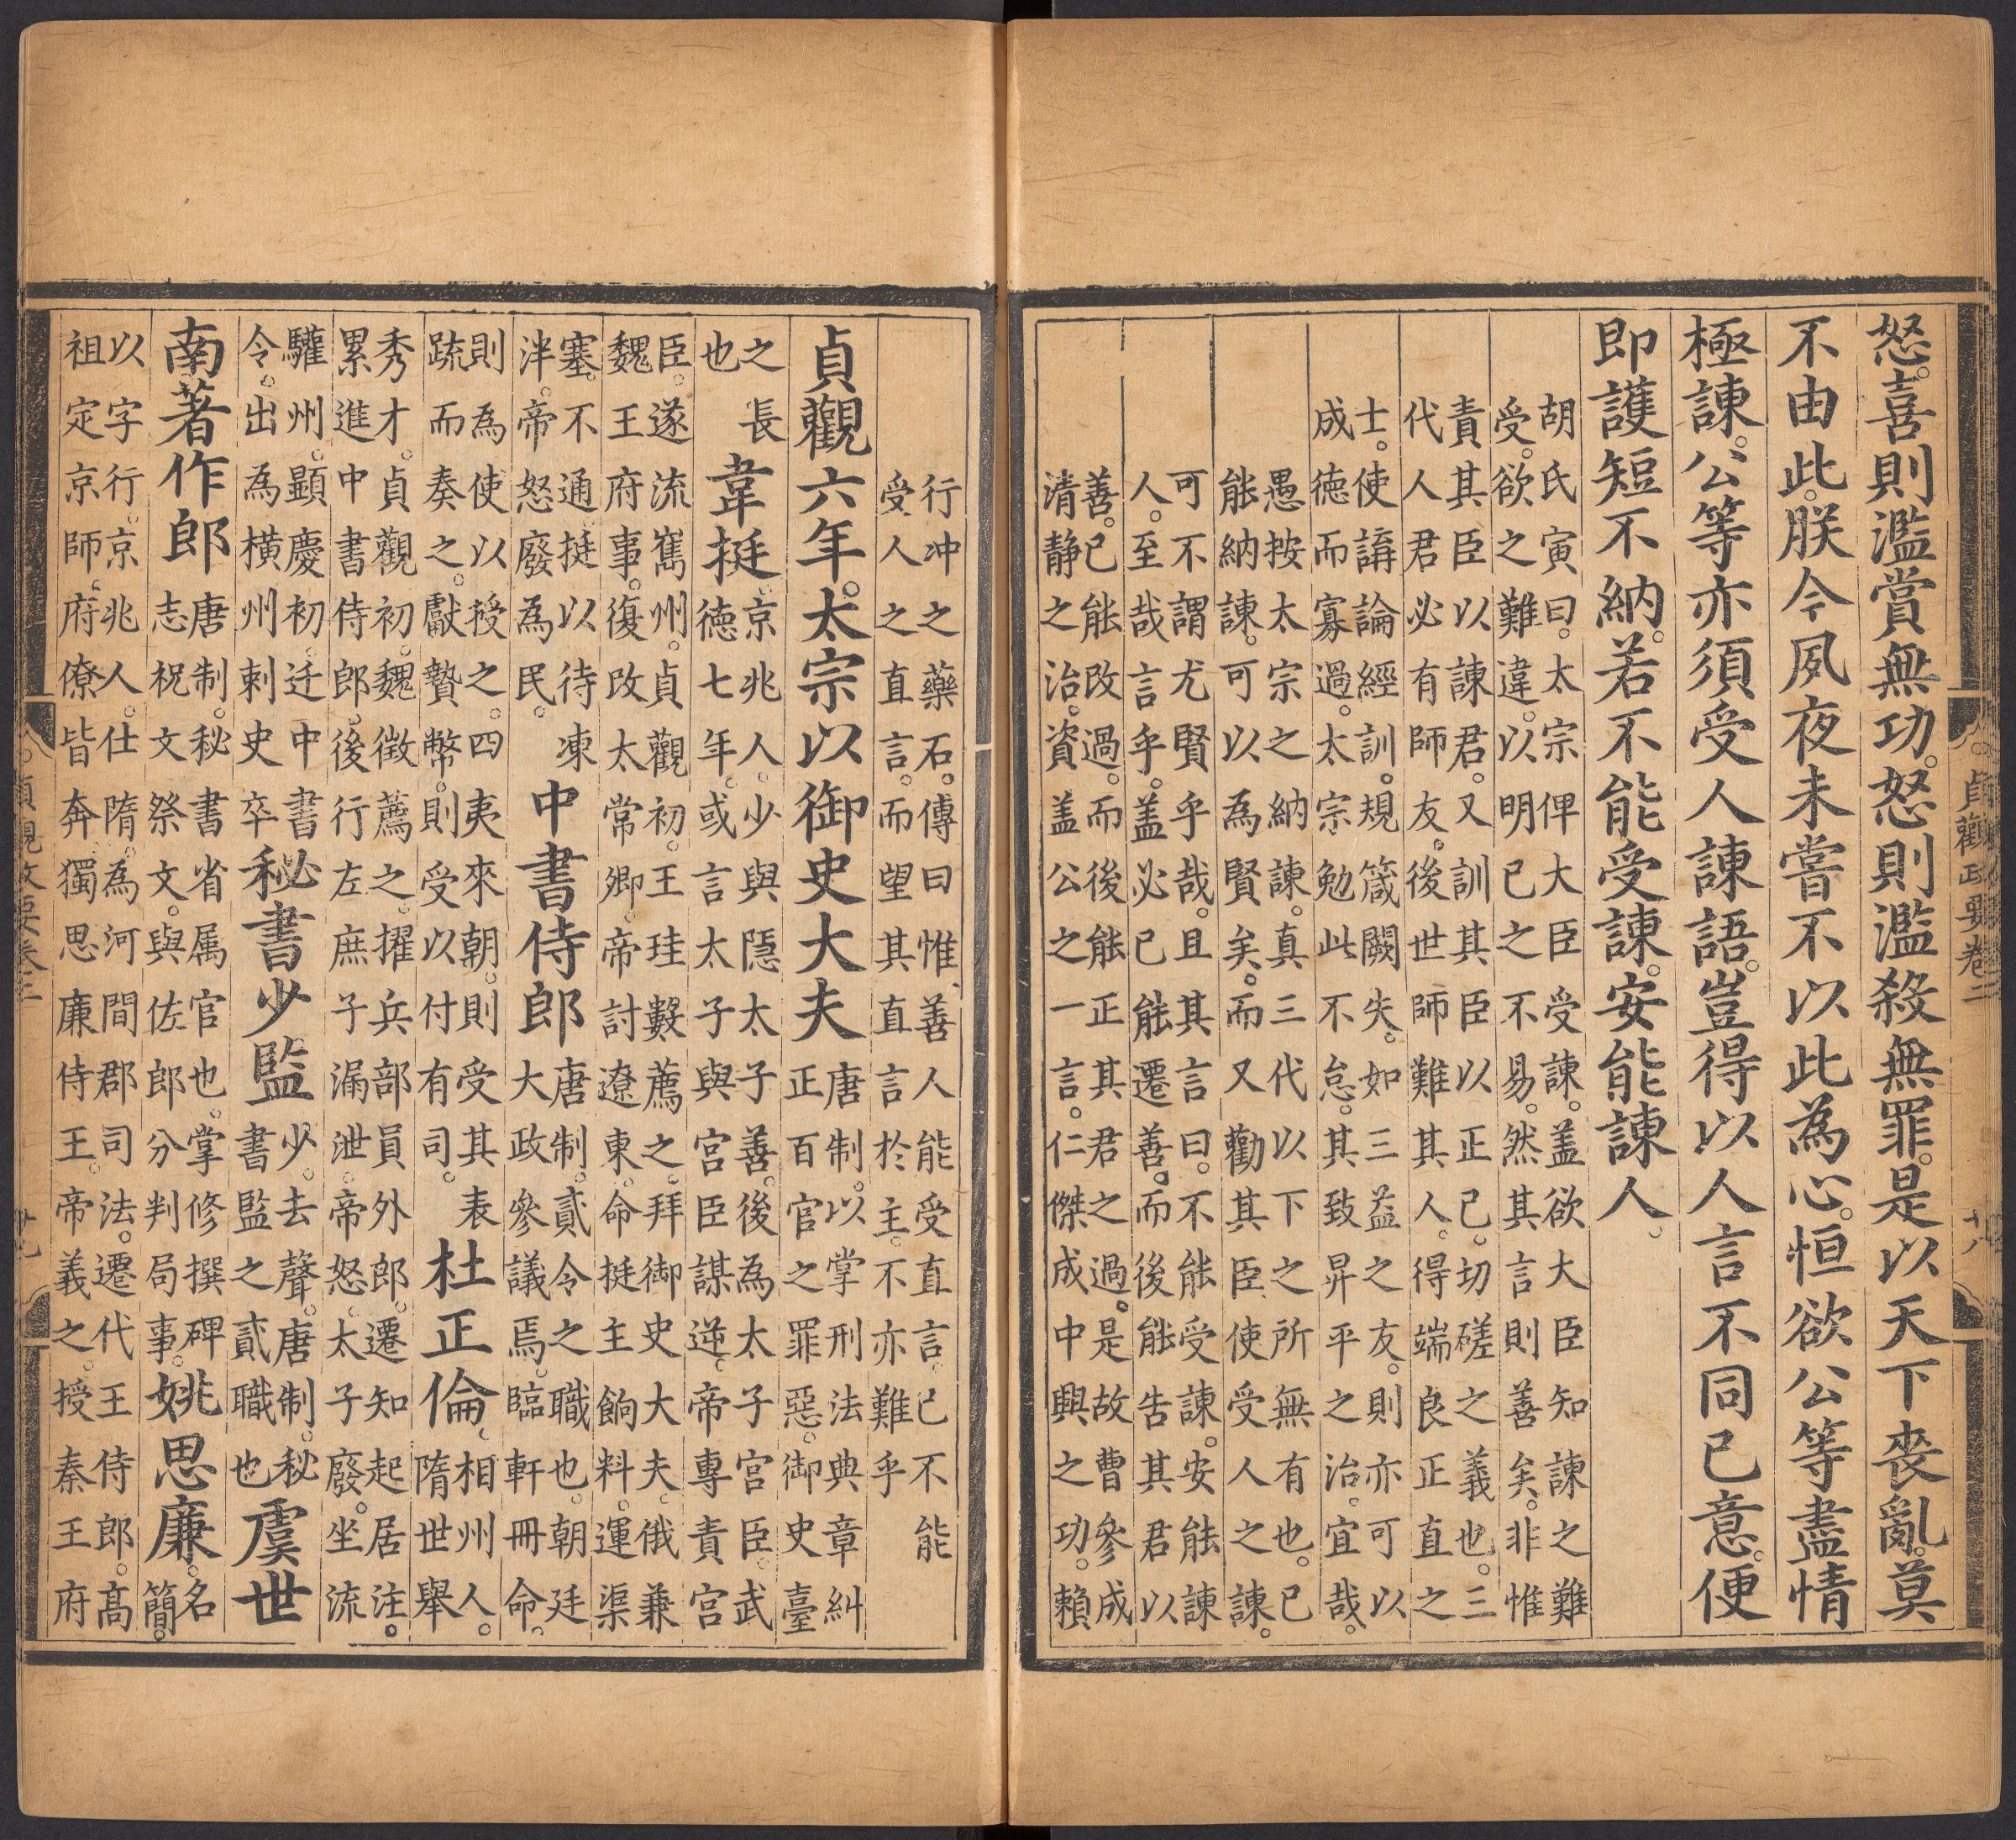 貞觀政要卷二
十八
怒。喜則濫賞無功。怒則濫殺無罪。是以天下丧亂。莫
不由此。朕今夙夜未嘗不以此為心。恒欲公等盡情
極諫。公等亦須受人諫語。豈得以人言不同已意。便
即護短不納。若不能受諫。安能諫人。
胡氏寅曰。太宗俾大臣受諫。盖欲大臣知諫之難
受。欲之難違。以明已之不易。然其言則善矣。非惟
責其臣以諫君。又訓其臣以正己。切磋之義也。三
代人君必有師友。後世師難其人。得端良正直之
士。使講論經訓。規箴闕失。如三益之友。則亦可以
成徳而寡過。太宗勉此不怠。其致昇平之治。宜哉。
愚按太宗之納諫。真三代以下之所無有也。已
能納諫。可以為賢矣。而又勸其臣使受人之諫。
可不謂尤賢乎哉。且其言曰。不能受諫。安能諫
人。至哉言乎。盖必已能遷善。而後能告其君以
善。已能改過。而後能正其君之過。是故曹參成
清静之治。資盖公之一言。仁傑成中興之功。賴
行冲之藥石。傳曰惟善人能受直言。已不能
受人之直言。而望其直言於主。不亦難乎
貞觀六年。太宗以御史大夫唐制。以掌刑法典章糾
正百官之罪惡。御史臺
之長
也
韋挺。京兆人。少與隱太子善。後為太子宮臣。武
徳七年。或言太子與宮臣謀逆。帝專責宮
臣。遂流嶲州。貞觀初。王珪數薦之。拜御史大夫。俄兼
魏王府事。復改太常卿。帝討遼東。命挺主餉料。運渠
塞。不通。挺以待凍
泮。帝怒廢為民。
中書侍郎唐制。貳令之職也。朝廷
大政參議焉。臨軒冊命。
則為使以授之。四夷來朝。則受其表
疏而奏之。獻贄幣。則受以付有司。
杜正倫。相州人。
隋世舉
秀才。貞觀初。魏徵薦之。擢兵部員外郎。遷知起居注。
累進中書侍郎。後行左庶子漏泄。帝怒。太子廢。坐流
驩州。顯慶初。迁中書
令。出為橫州刺史卒
秘書少監少。去聲。唐制。秘
書監之貳職也
虞世
南著作郎唐制。秘書省属官也。掌修撰碑
志祝文祭文。與佐郎分判局事。
姚思廉。名
簡。
以字行。京兆人。仕隋。為河間郡司法。遷代王侍郎。高
祖定京師。府僚皆奔。獨思廉侍王。帝義之。授秦王府